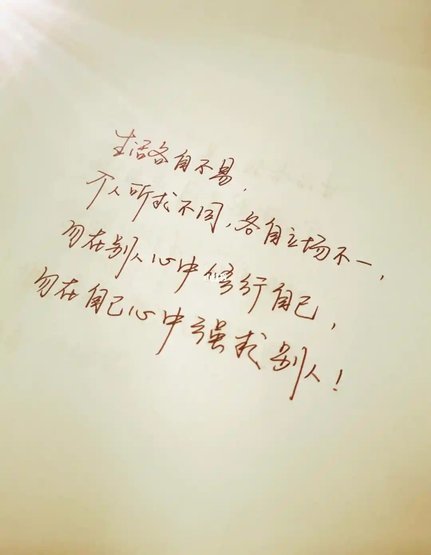 生活各自不易，
个人所求不同，各自立场不一，
勿在别人心中修行自己，
勿在自己心中强求别人！